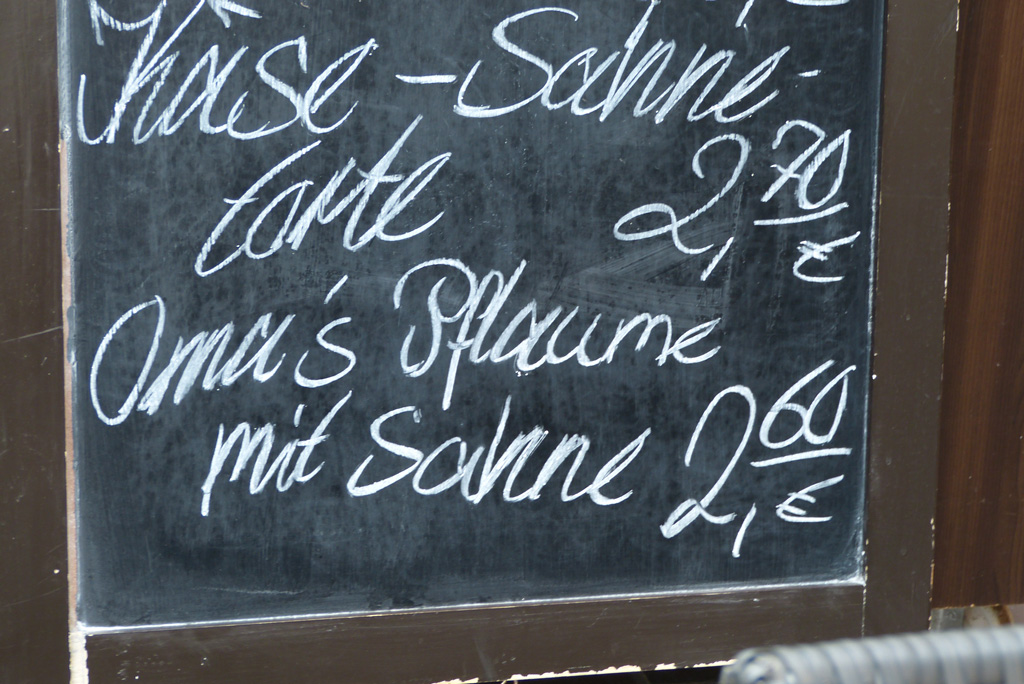 Käse-Sahne-
torte 2,70 €
Oma's Pflaume
mit Sahne 2,60 €